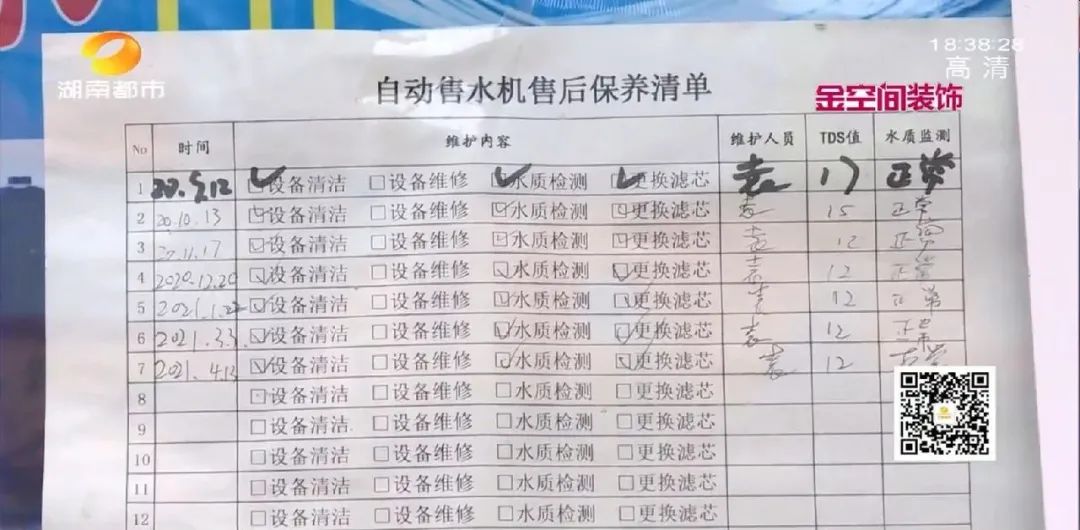 18:38:28
高清
湖南都市
金空间装饰
自动售水机售后保养清单
No 时间 维护内容 维护人员 TDS值 水质监测
1 ☑设备清洁 □设备维修 ☑水质检测 ☑更换滤芯 袁 17 正常
2 20.10.13 ☑设备清洁 □设备维修 ☑水质检测 ☑更换滤芯 袁 15 正常
3 20.11.17 ☑设备清洁 □设备维修 ☑水质检测 ☑更换滤芯 袁 12 正常
4 2020.12.20 ☑设备清洁 □设备维修 ☑水质检测 ☑更换滤芯 袁 12 正常
5 ☑设备清洁 □设备维修 ☑水质检测 ☑更换滤芯 袁 12 正常
6 2021.3.3 ☑设备清洁 □设备维修 ☑水质检测 ☑更换滤芯 袁 12 正常
7 ☑设备清洁 □设备维修 ☑水质检测 ☑更换滤芯 袁 12 正常
8 □设备清洁 □设备维修 □水质检测 □更换滤芯
9 □设备清洁 □设备维修 □水质检测 □更换滤芯
10 □设备清洁 □设备维修 □水质检测 □更换滤芯
11 □设备清洁 □设备维修 □水质检测 □更换滤芯
12 □设备清洁 □设备维修 □水质检测 □更换滤芯